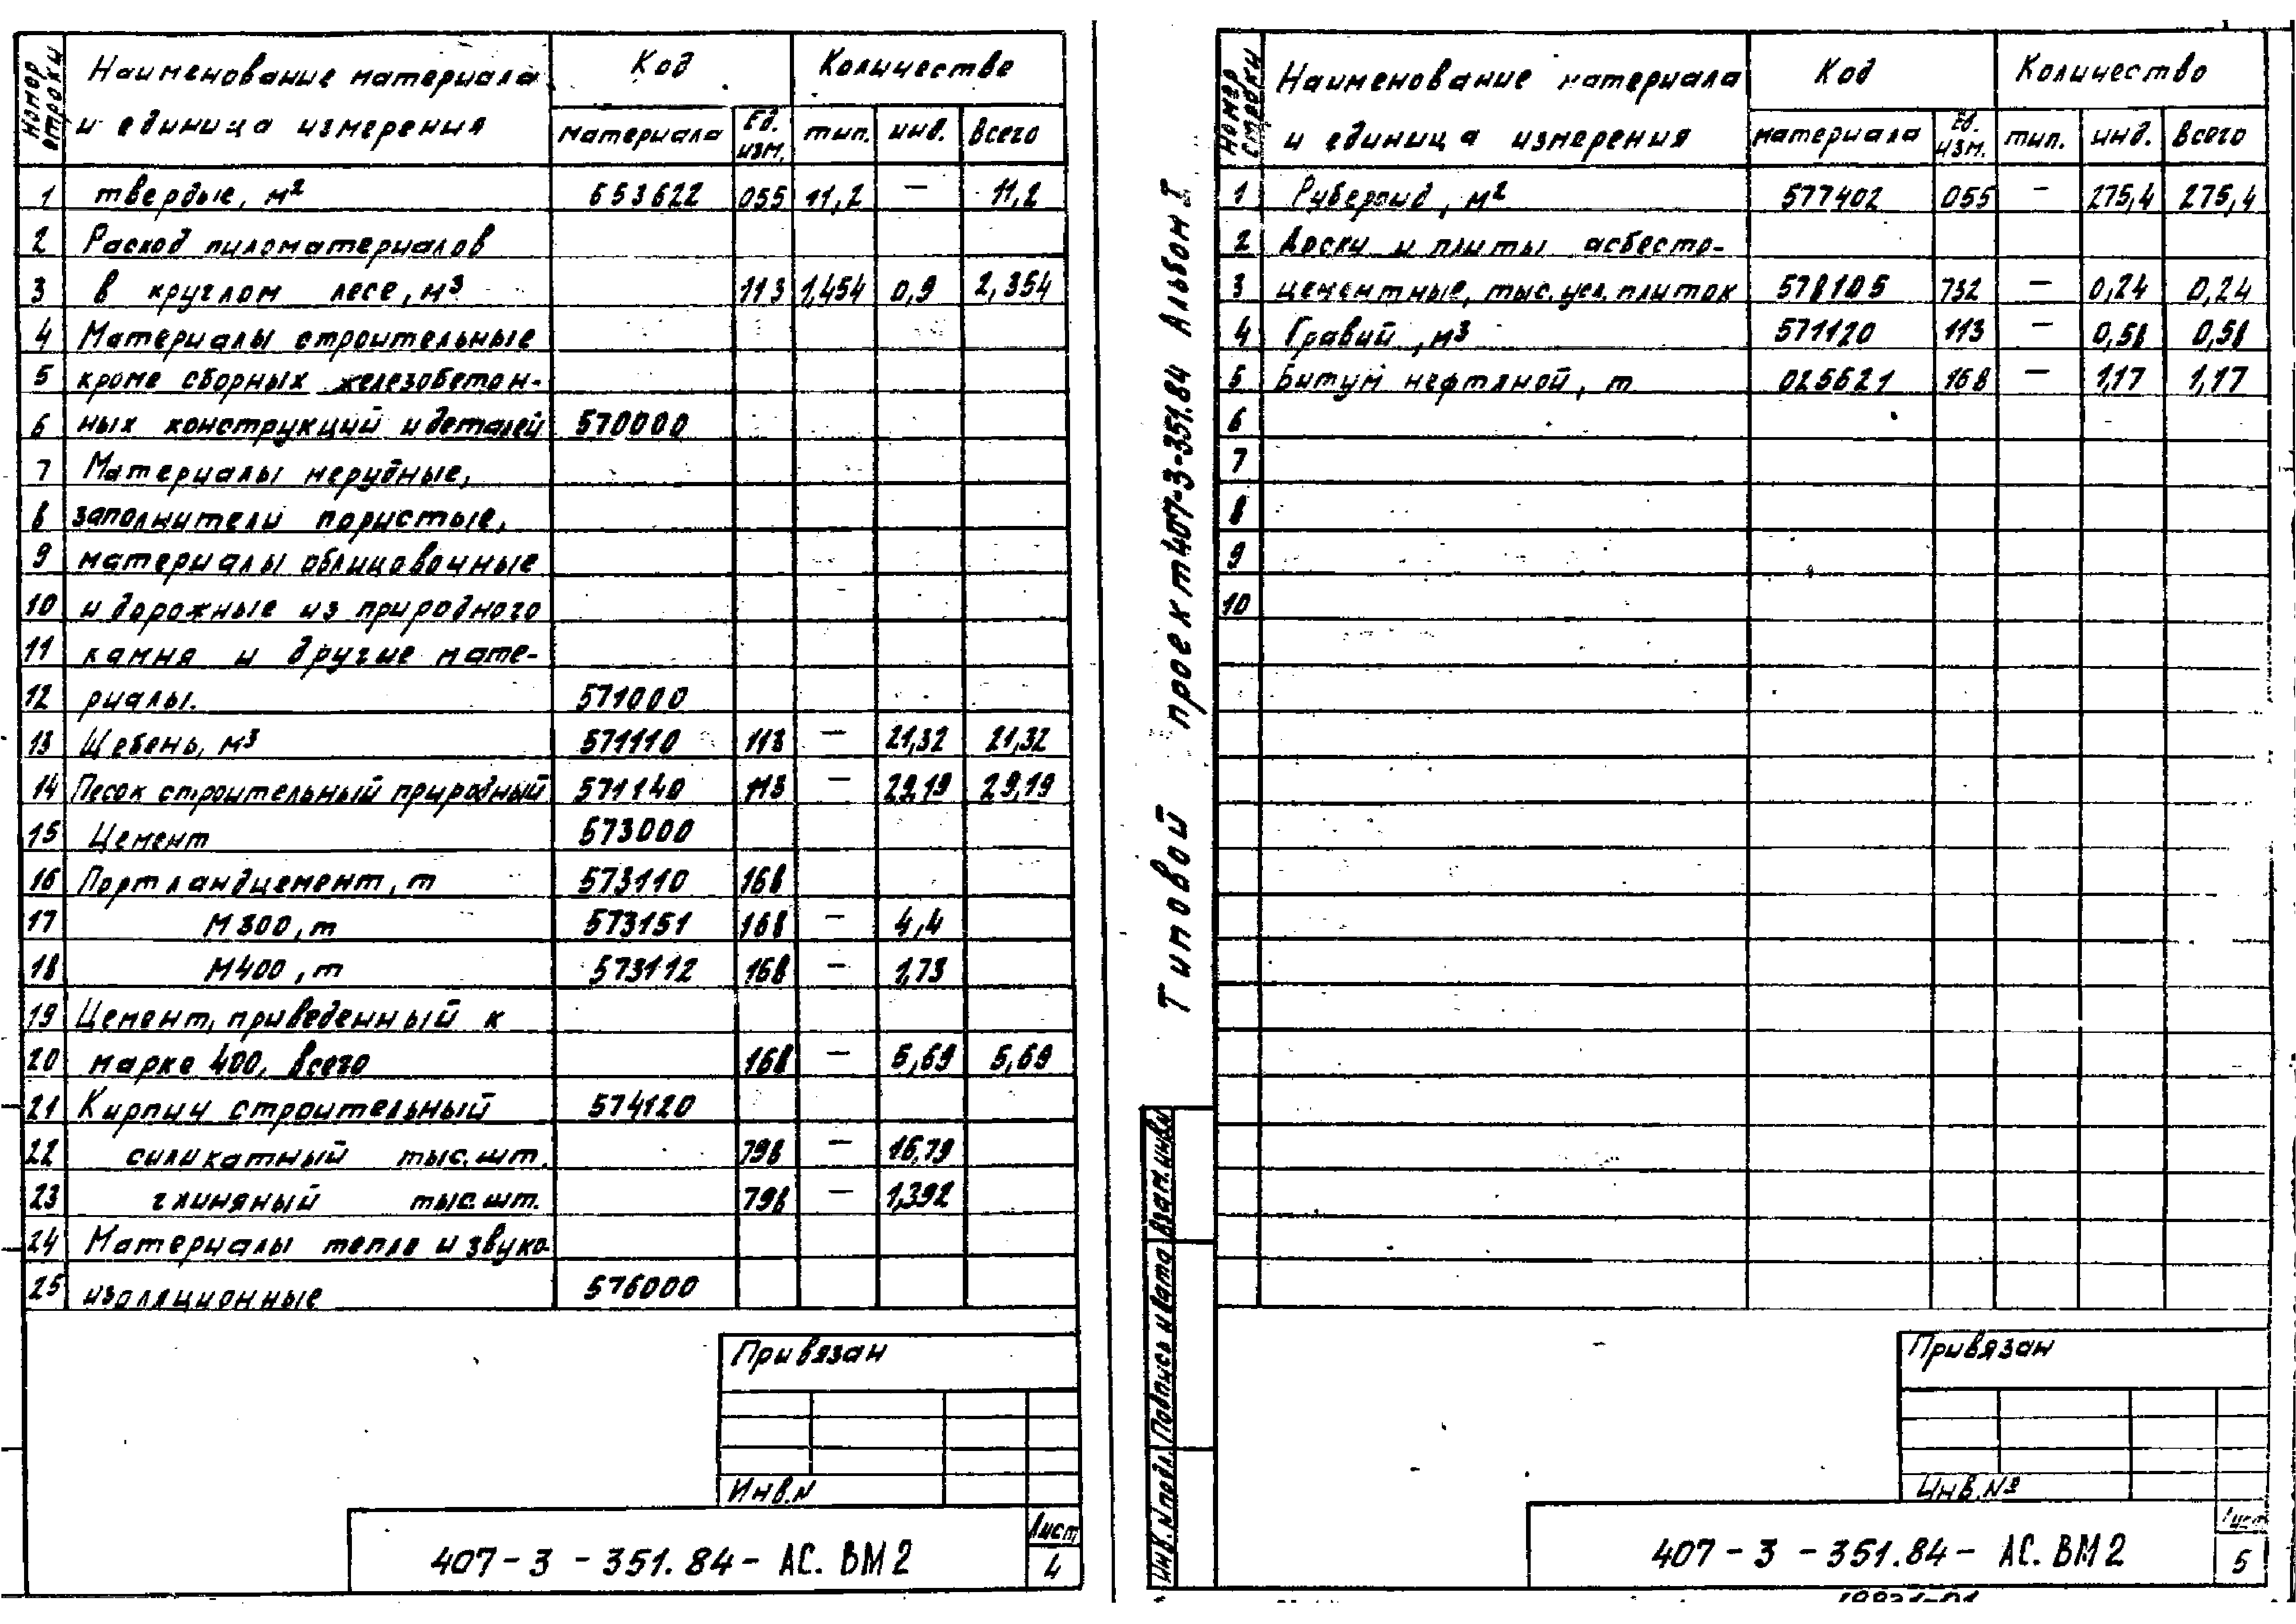 Номер строки Наименование материала и единица измерения Код Количество
материала Ед. изм. тип. инд. Всего
1 твердые, м² 653622 055 11,2 — 11,2
2 Расход пиломатериалов
3 в круглом лесе, м³ 113 1,454 0,9 2,354
4 Материалы строительные
5 кроме сборных железобетон-
6 ных конструкций и деталей 570000
7 Материалы нерудные,
8 заполнители пористые,
9 материалы облицовочные
10 и дорожные из природного
11 камня и другие мате-
12 риалы. 571000
13 Щебень, м³ 571110 113 — 21,32 21,32
14 Песок строительный природный 571140 113 — 29,19 29,19
15 Цемент 573000
16 Портландцемент, т 573110 168
17 М300, т 573151 168 — 4,4
18 М400, т 573112 168 — 1,73
19 Цемент, приведенный к
20 марке 400, всего 168 — 5,69 5,69
21 Кирпич строительный 574120
22 силикатный тыс.шт. 798 — 16,79
23 глиняный тыс.шт. 798 — 1,392
24 Материалы тепло и звуко-
25 изоляционные 576000
Привязан
Инв.N
407-3-351.84-АС.ВМ2
Лист
4
Типовой проект 407-3-351.84 Альбом I
Номер строки Наименование материала и единица измерения Код Количество
материала Ед. изм. тип. инд. Всего
1 Рубероид, м² 577402 055 — 275,4 275,4
2 Доски и плиты асбесто-
3 цементные, тыс.усл.плиток 578105 732 — 0,24 0,24
4 Гравий, м³ 571120 113 — 0,58 0,58
5 Битум нефтяной, т 025621 168 — 1,17 1,17
6
7
8
9
10
Взам.инв.N
Подпись и дата
Инв.N подл.
Привязан
Инв.№
407-3-351.84-АС.ВМ2
Лист
5